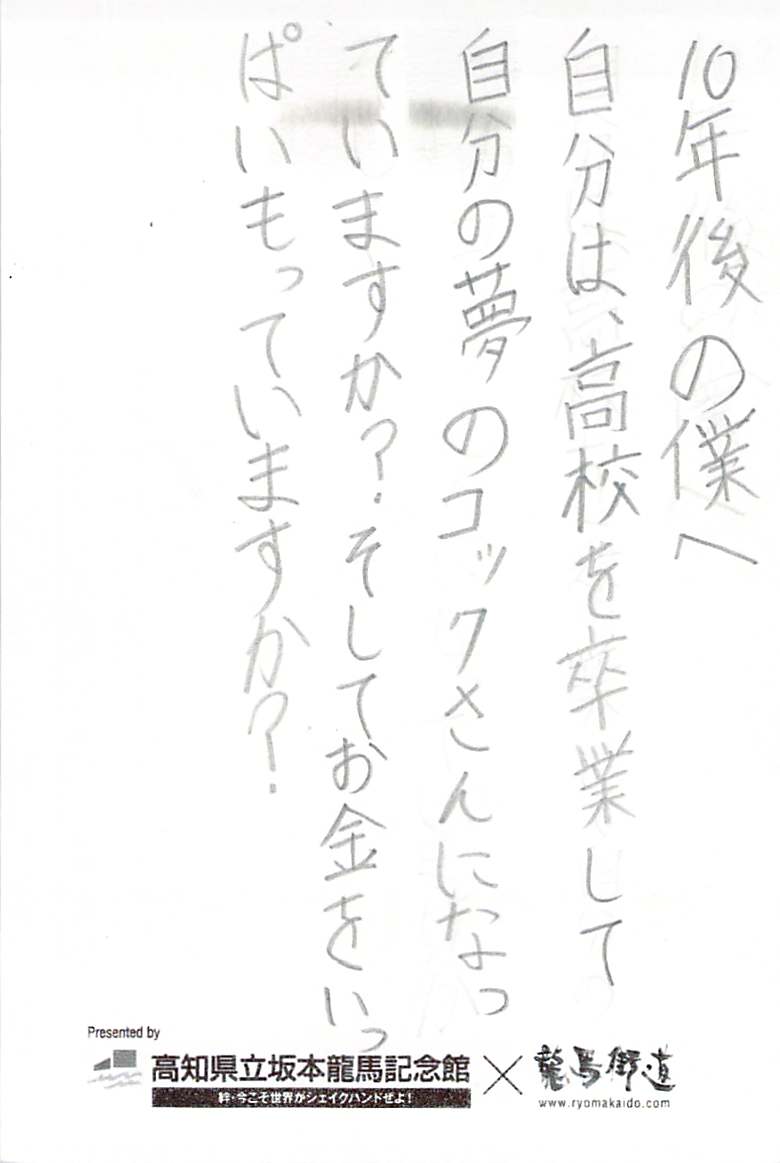 10年後の僕へ
自分は、高校を卒業して
自分の夢のコックさんになっ
ていますか?そしてお金をいっ
ぱいもっていますか?
Presented by
高知県立坂本龍馬記念館×龍馬街道
絆・今こそ世界がシェイクハンドぜよ!
www.ryomakaido.com